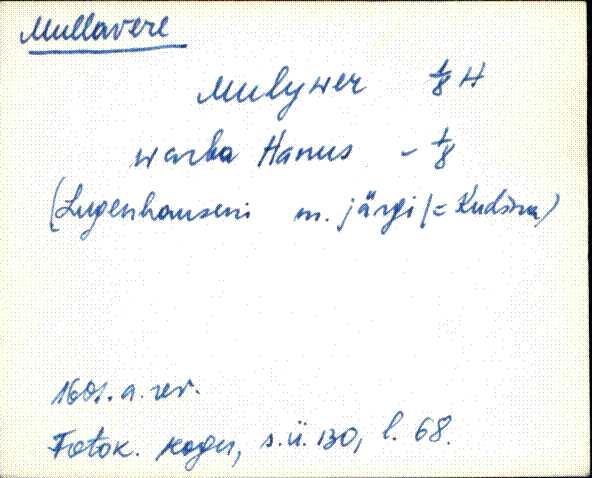 Mullavere
Mulywer 1/8 H
warba Hanus - 1/8
(Lugenhauseni m. järgi /= Kudina)
1601. a. rev.
Fotok. kogu, s.ü. 130, l. 68.